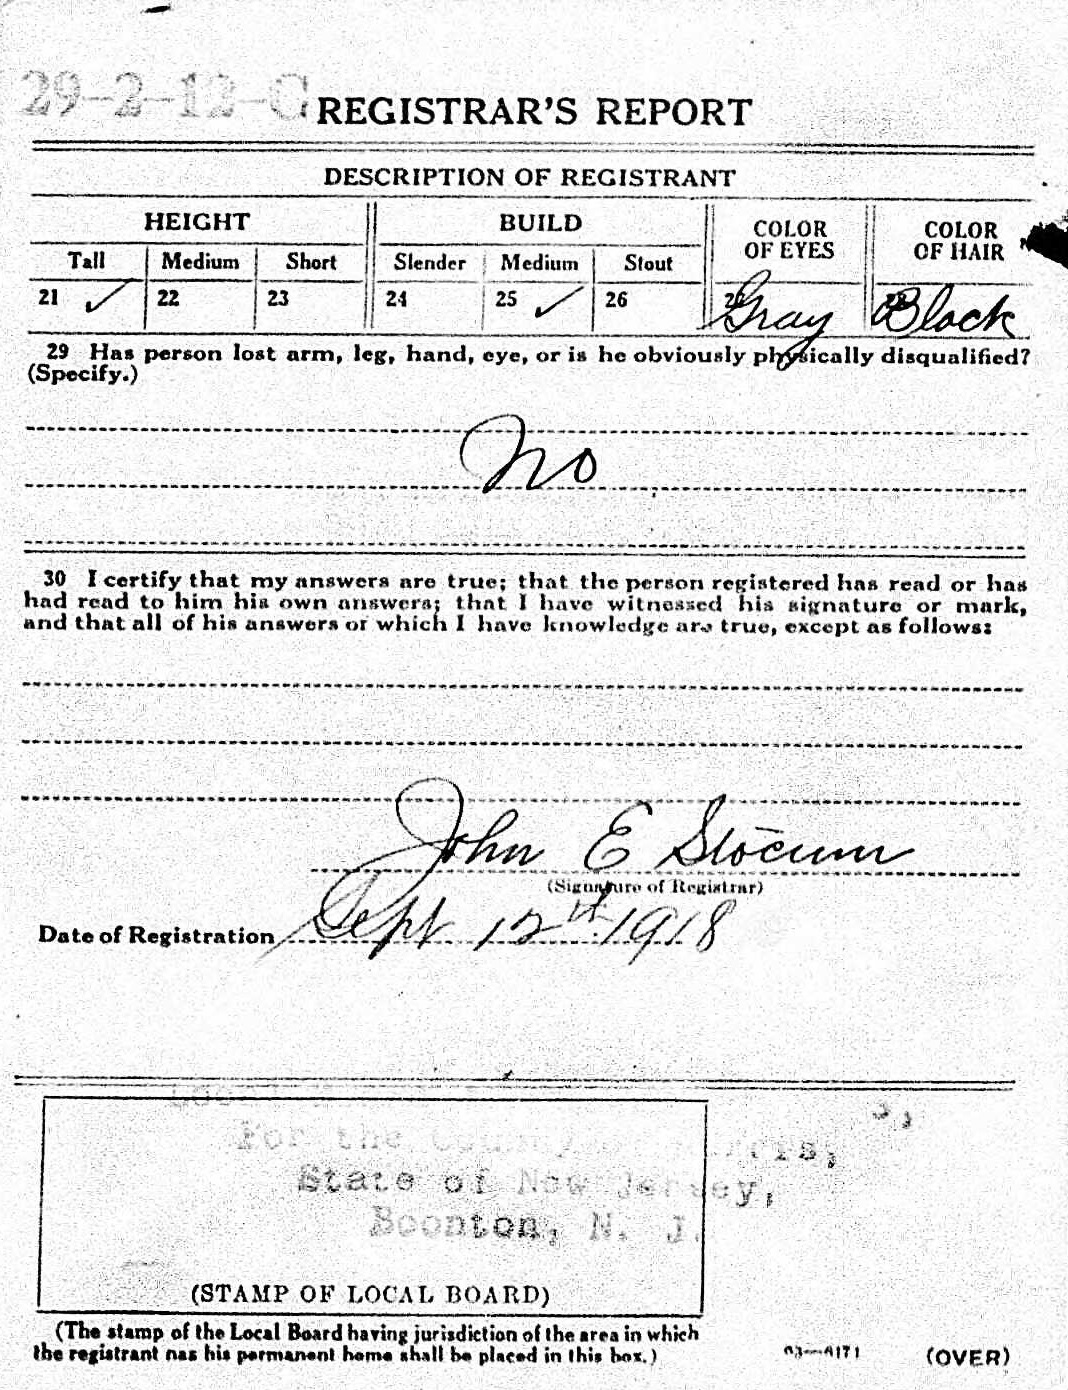 29-2-12-C REGISTRAR'S REPORT
DESCRIPTION OF REGISTRANT
HEIGHT BUILD COLOR OF EYES COLOR OF HAIR
Tall Medium Short Slender Medium Stout
21 ✓ 22 23 24 25 ✓ 26 27 Gray Black
29 Has person lost arm, leg, hand, eye, or is he obviously physically disqualified?
(Specify.)
No
30 I certify that my answers are true; that the person registered has read or has
had read to him his own answers; that I have witnessed his signature or mark,
and that all of his answers of which I have knowledge are true, except as follows:
John E Slocum
(Signature of Registrar)
Date of Registration Sept 12th 1918
For the County
State of New Jersey,
Boonton, N. J.
(STAMP OF LOCAL BOARD)
(The stamp of the Local Board having jurisdiction of the area in which
the registrant has his permanent home shall be placed in this box.)
03—6171 (OVER)